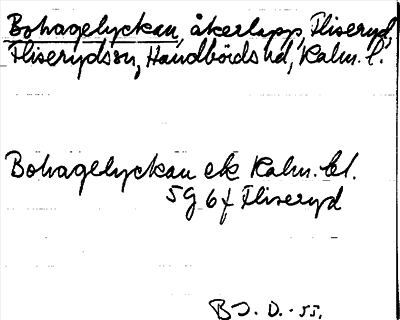 Bohagelyckan, åkerlapp, Fliseryd,
Fliserydssn, Handbörds hd, Kalm. l.
Bohagelyckan ek Kalm. bl.
5G 6f Fliseryd
BJ. D. -55.